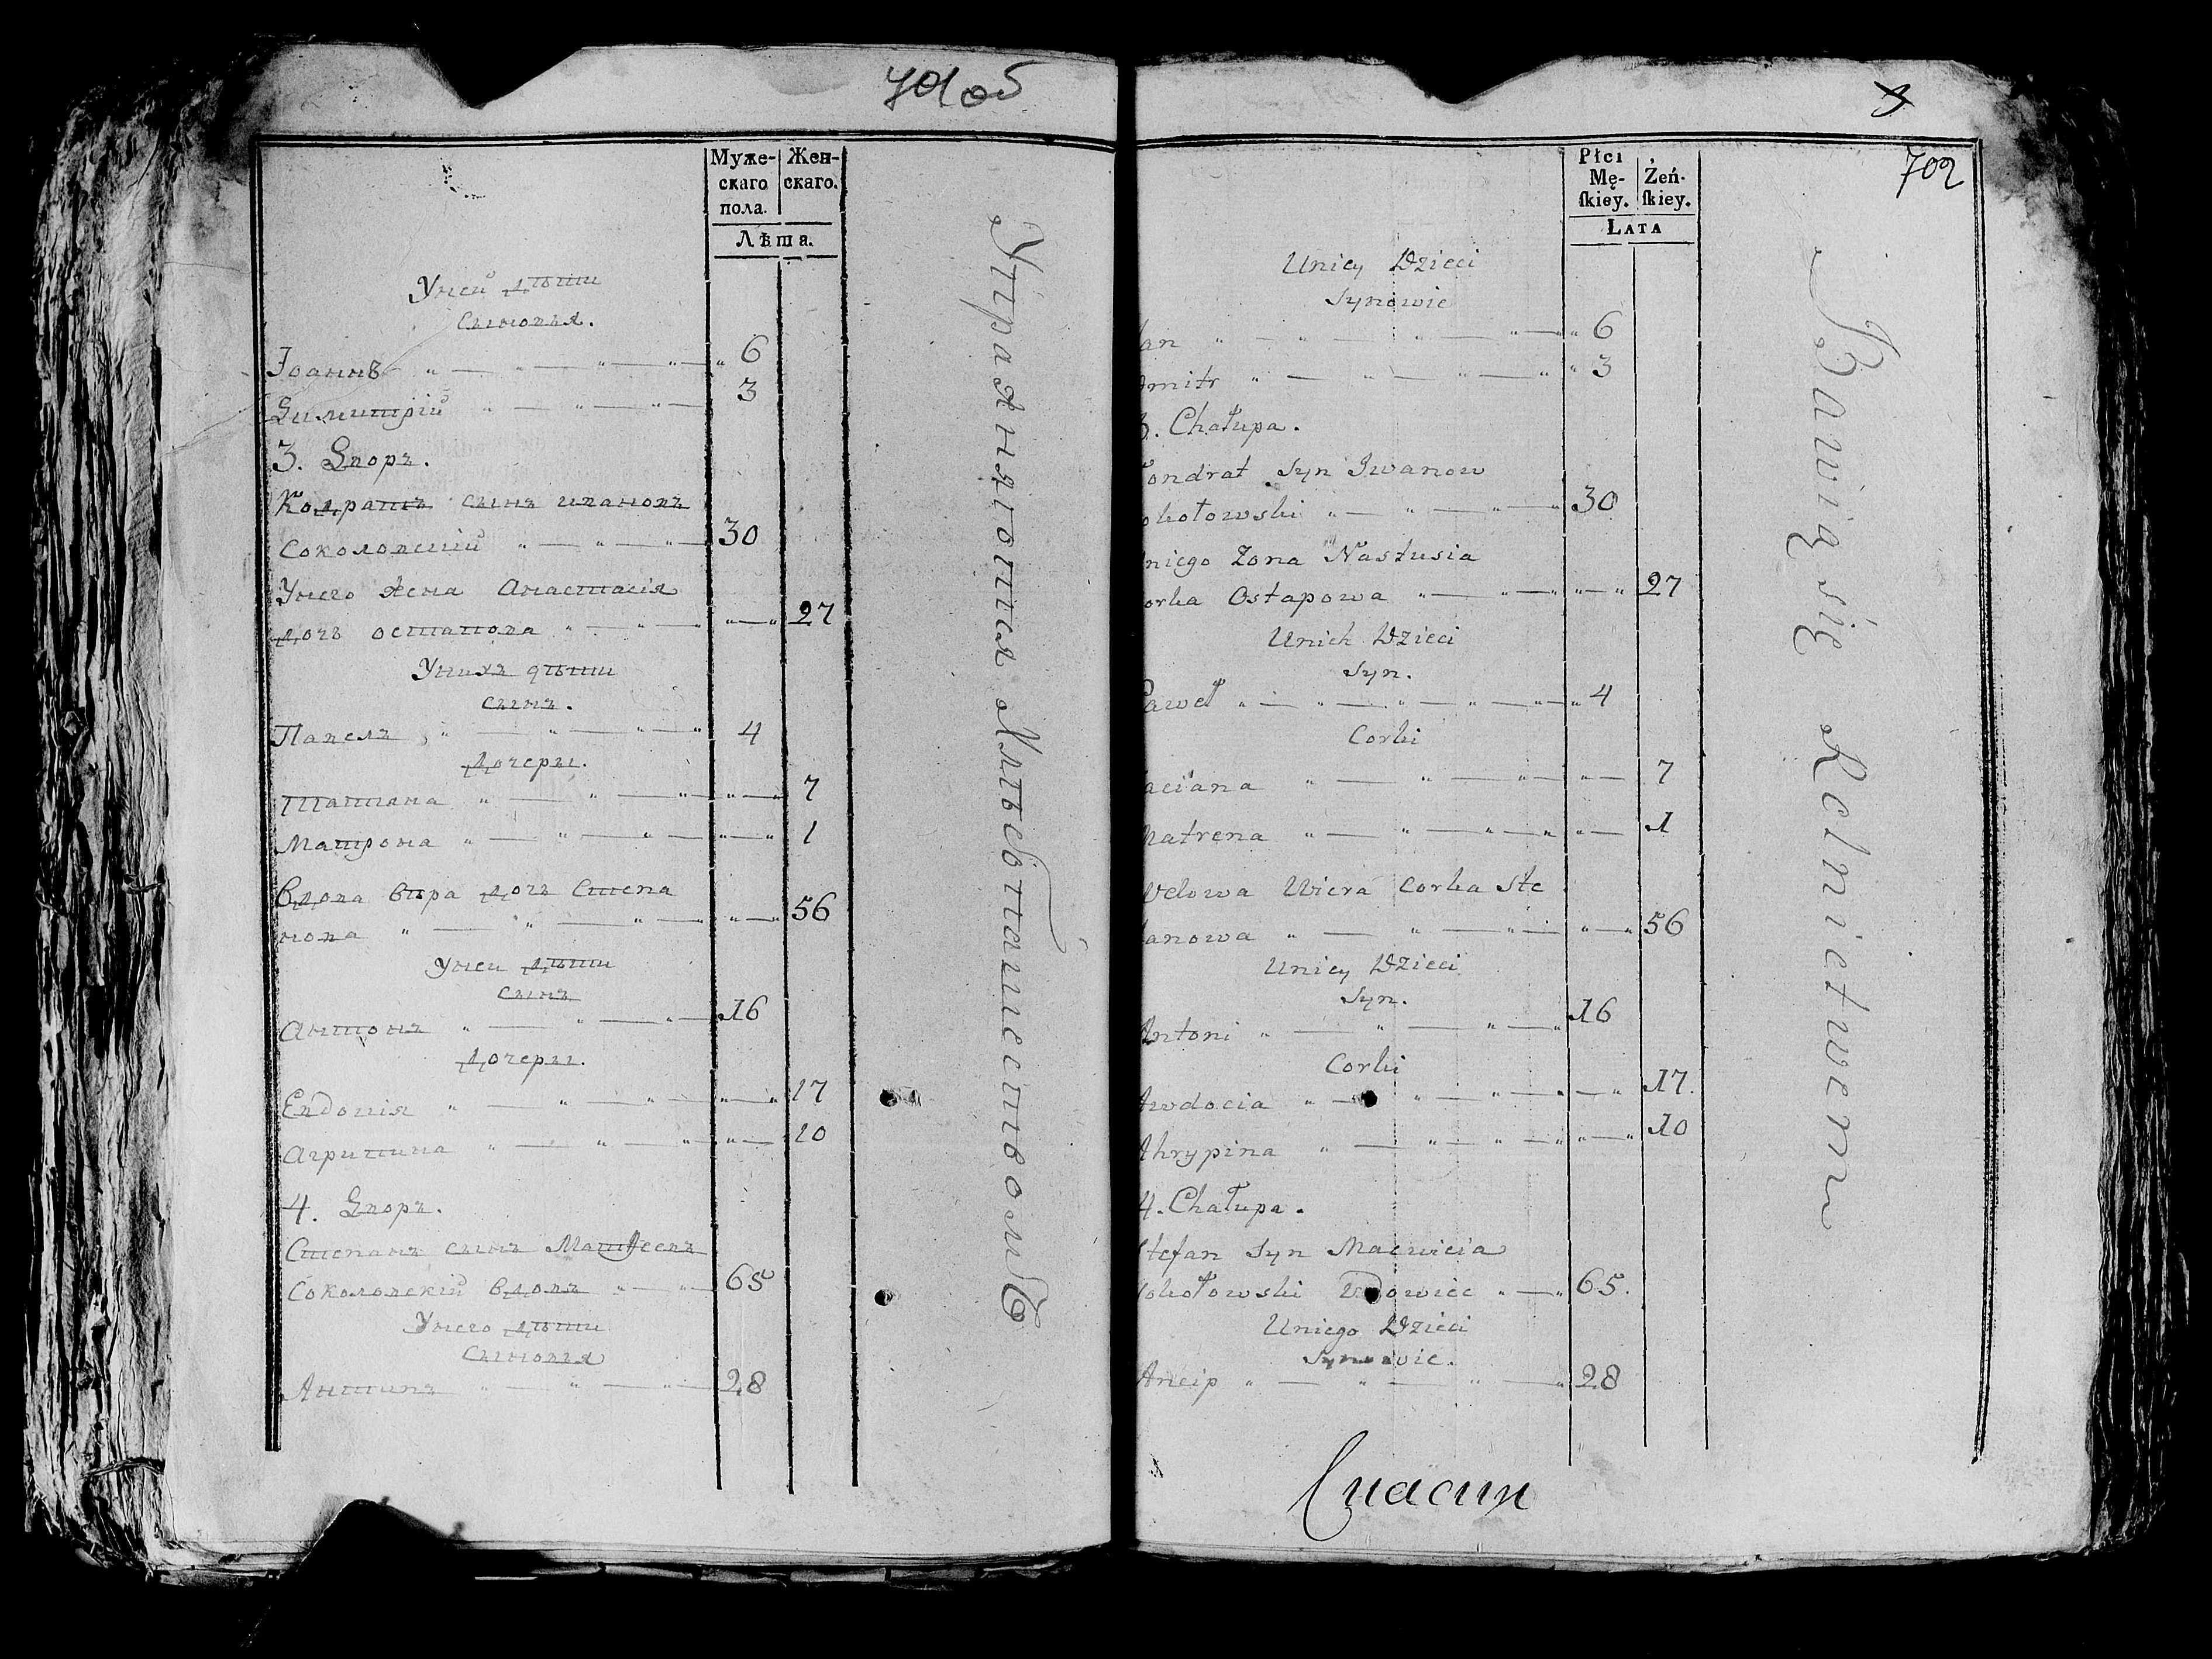 701 об
Муже-
скаго
пола.
Жен-
скаго.
Лѣта.
Уней дѣти
Сыновья.
Іоаннъ 6
Димитрій 3
3. Дворъ.
Кодратъ сынъ ивановъ
Соколовскій 30
Унего жена Анастасія
дочь остапова 27
Унихъ дѣти
сынъ.
Павелъ 4
дочеры.
Татіана 7
Матрона 1
Вдова вѣра дочь Степа
нова 56
Уней дѣти
сынъ
антонъ 16
дочеры.
Евдокія 17
агрипина 10
4. Дворъ.
Степанъ сынъ Матѳеевъ
Соколовскій вдовъ 65
Унего дѣти
Сыновья
Антипъ 28
Упражняются Хлѣбопашествомъ
3
702
Płci
Mę-
ſkiey.
Żeń-
ſkiey.
Lata
Unicy Dzieci
Synowie
Jan 6
Dmitr 3
3. Chałupa.
Kondrat Syn Iwanow
Sokołowski 30
Uniego Zona Nastusia
Corka Ostapowa 27
Unich Dzieci
Syn.
Paweł 4
Corki
Taciana 7
Matrena 1
Wdowa Wiera Corka Ste
fanowa 56
Unicy Dzieci
Syn.
Antoni 16
Corki
Awdocia 17.
Ahrypina 10
4. Chałupa.
Stefan Syn Macwieia
Sokołowski Wdowiec 65.
Uniego Dzieci
Synowie.
Ancip 28
Bawią się Rolnictwem